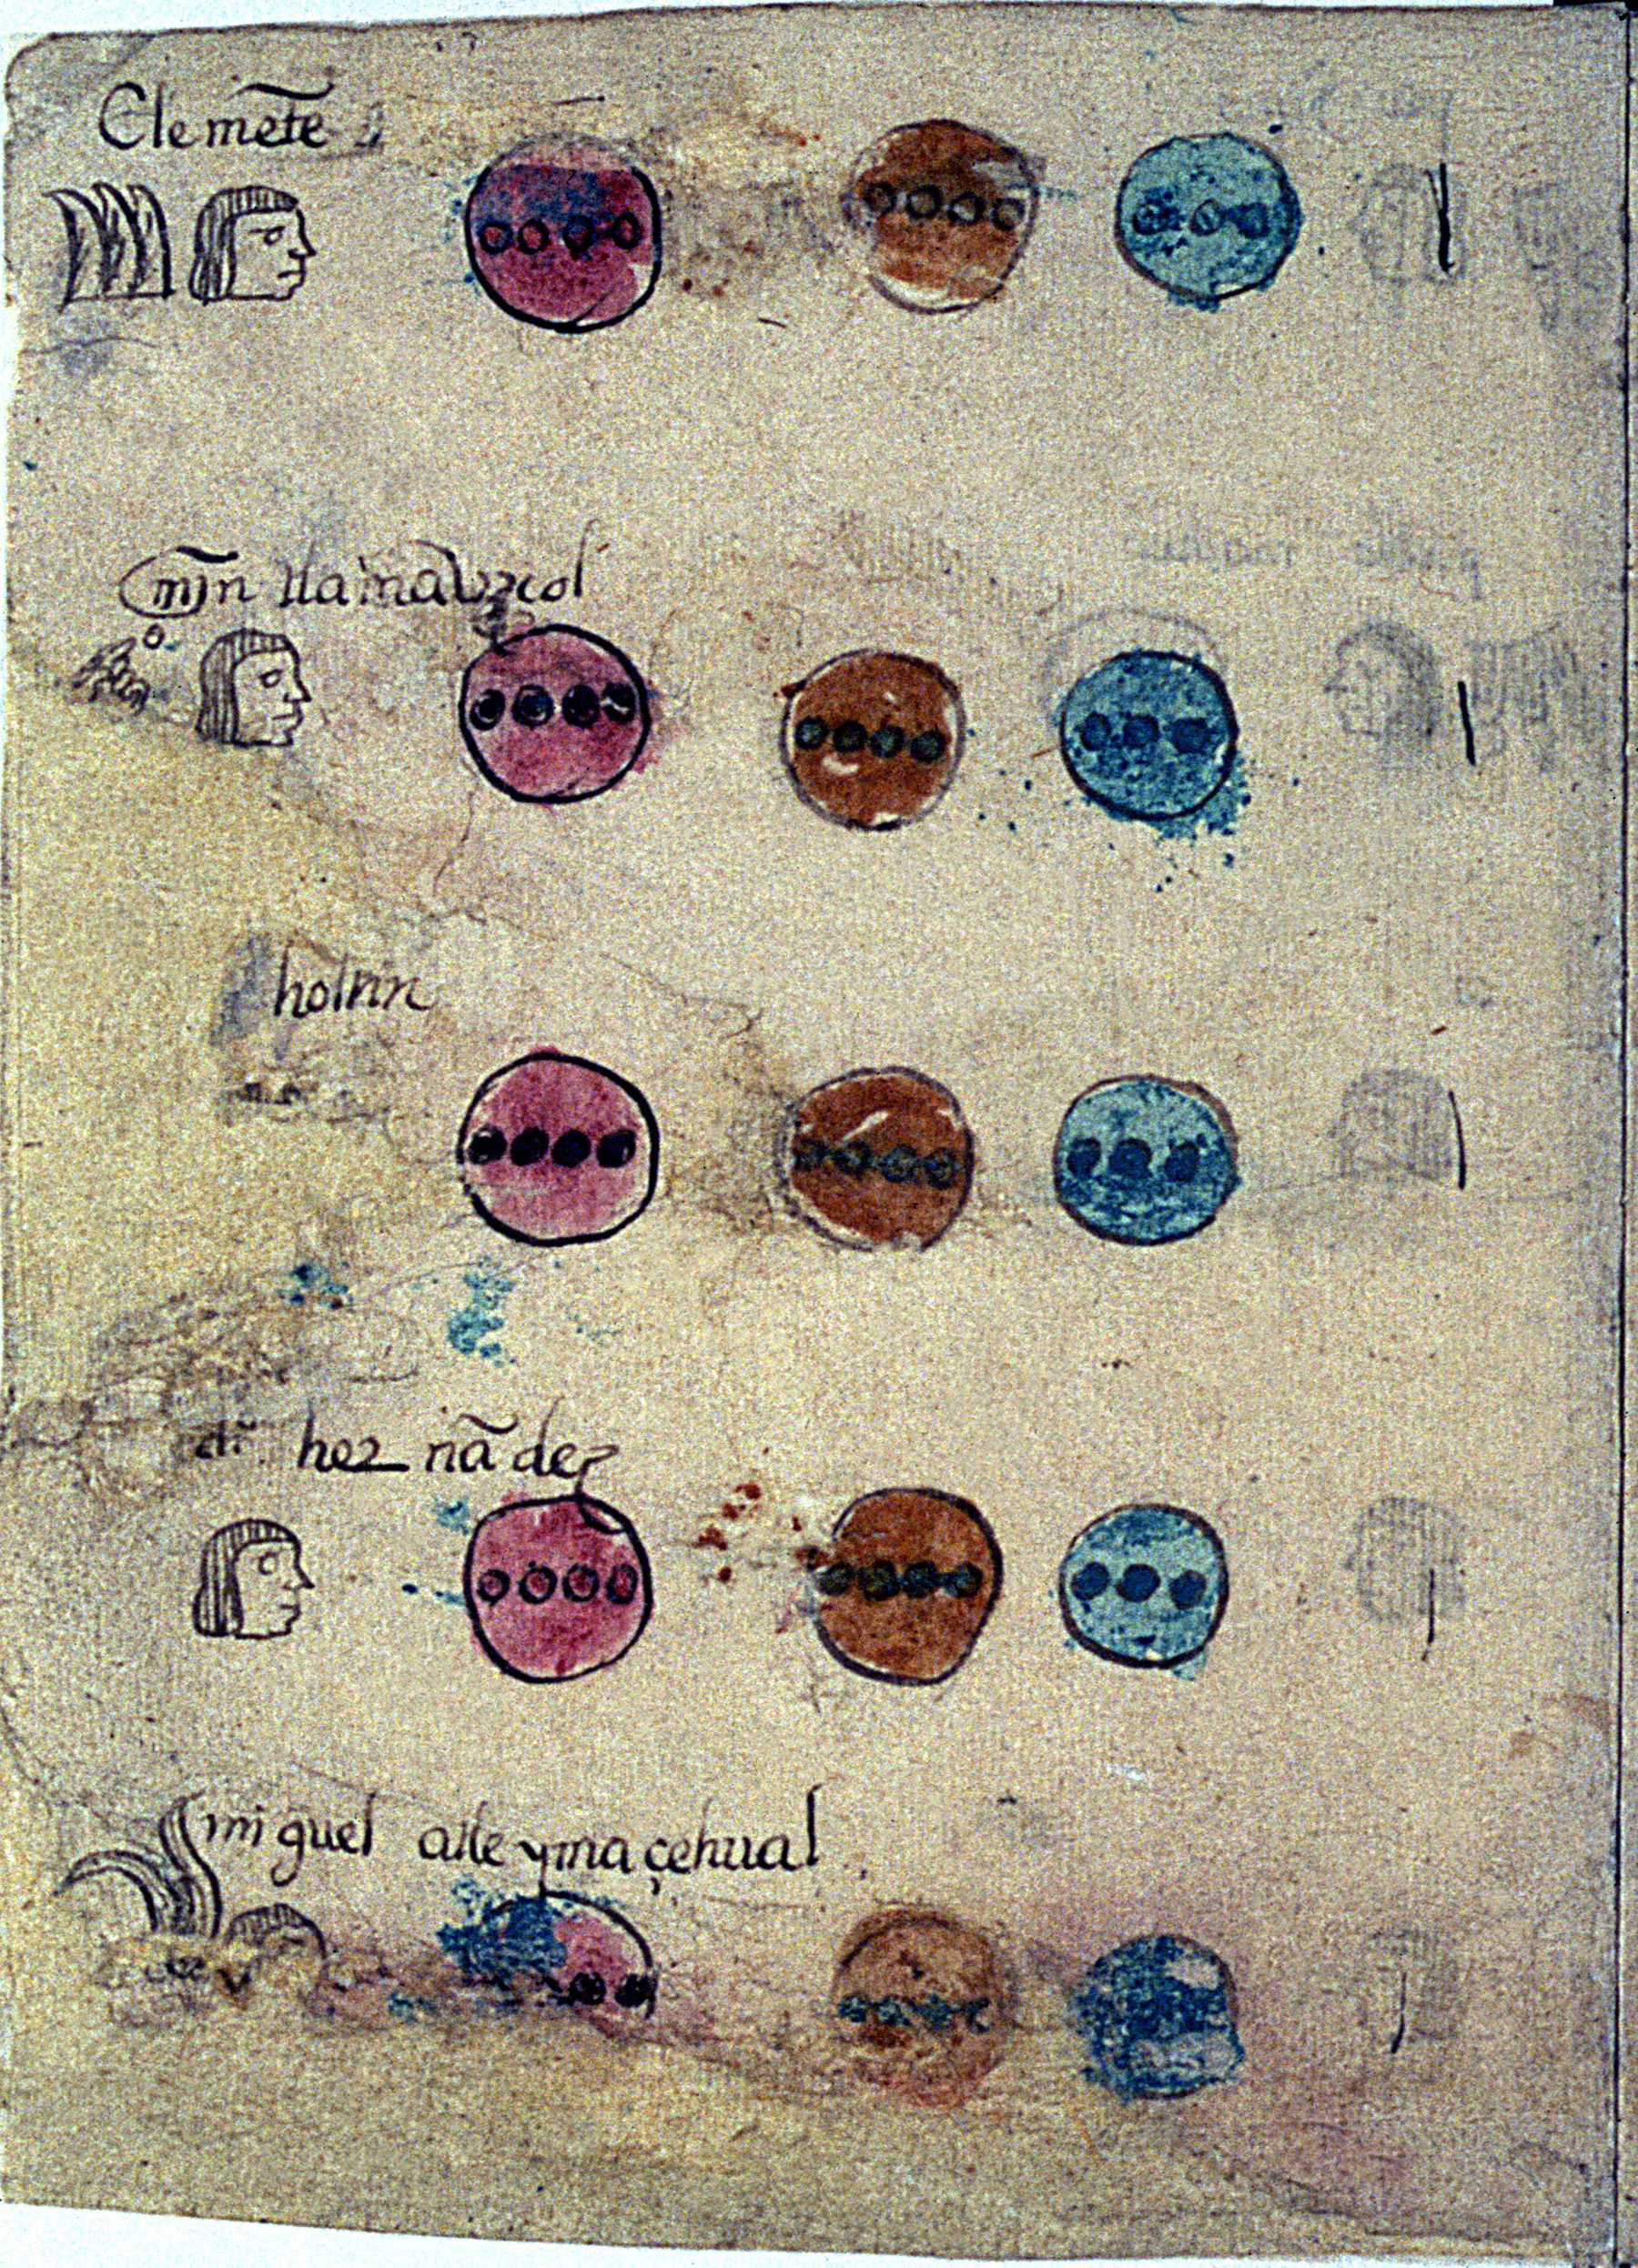 Clemẽte
mȷ̃n tlamavzcol
holnin
dio hez nã dez
miguel atle ymaçehual